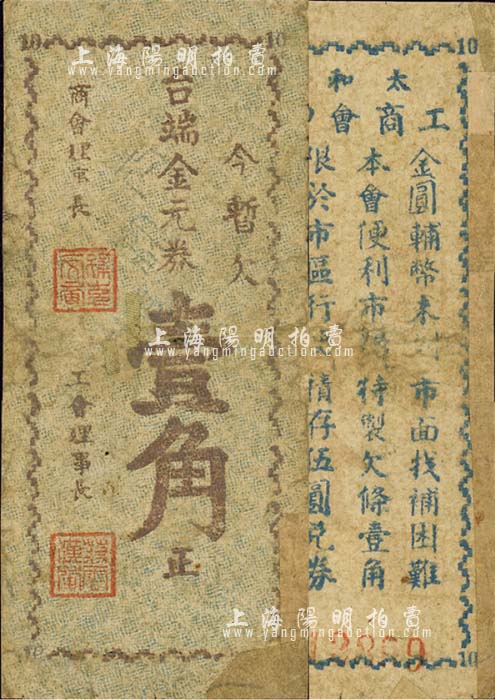 10 10
今暫欠
台端金元券
壹角正
商會理事長
工會理事長
10
10
太和
工商會
金圓輔幣未 市面找補困難
本會便利市 特製欠條壹角
限於市區行 積存伍圓兌券
12859
10
上海陽明拍賣
www.yangmingauction.com
上海陽明拍賣
www.yangmingauction.com
上海陽明拍賣
www.yangmingauction.com